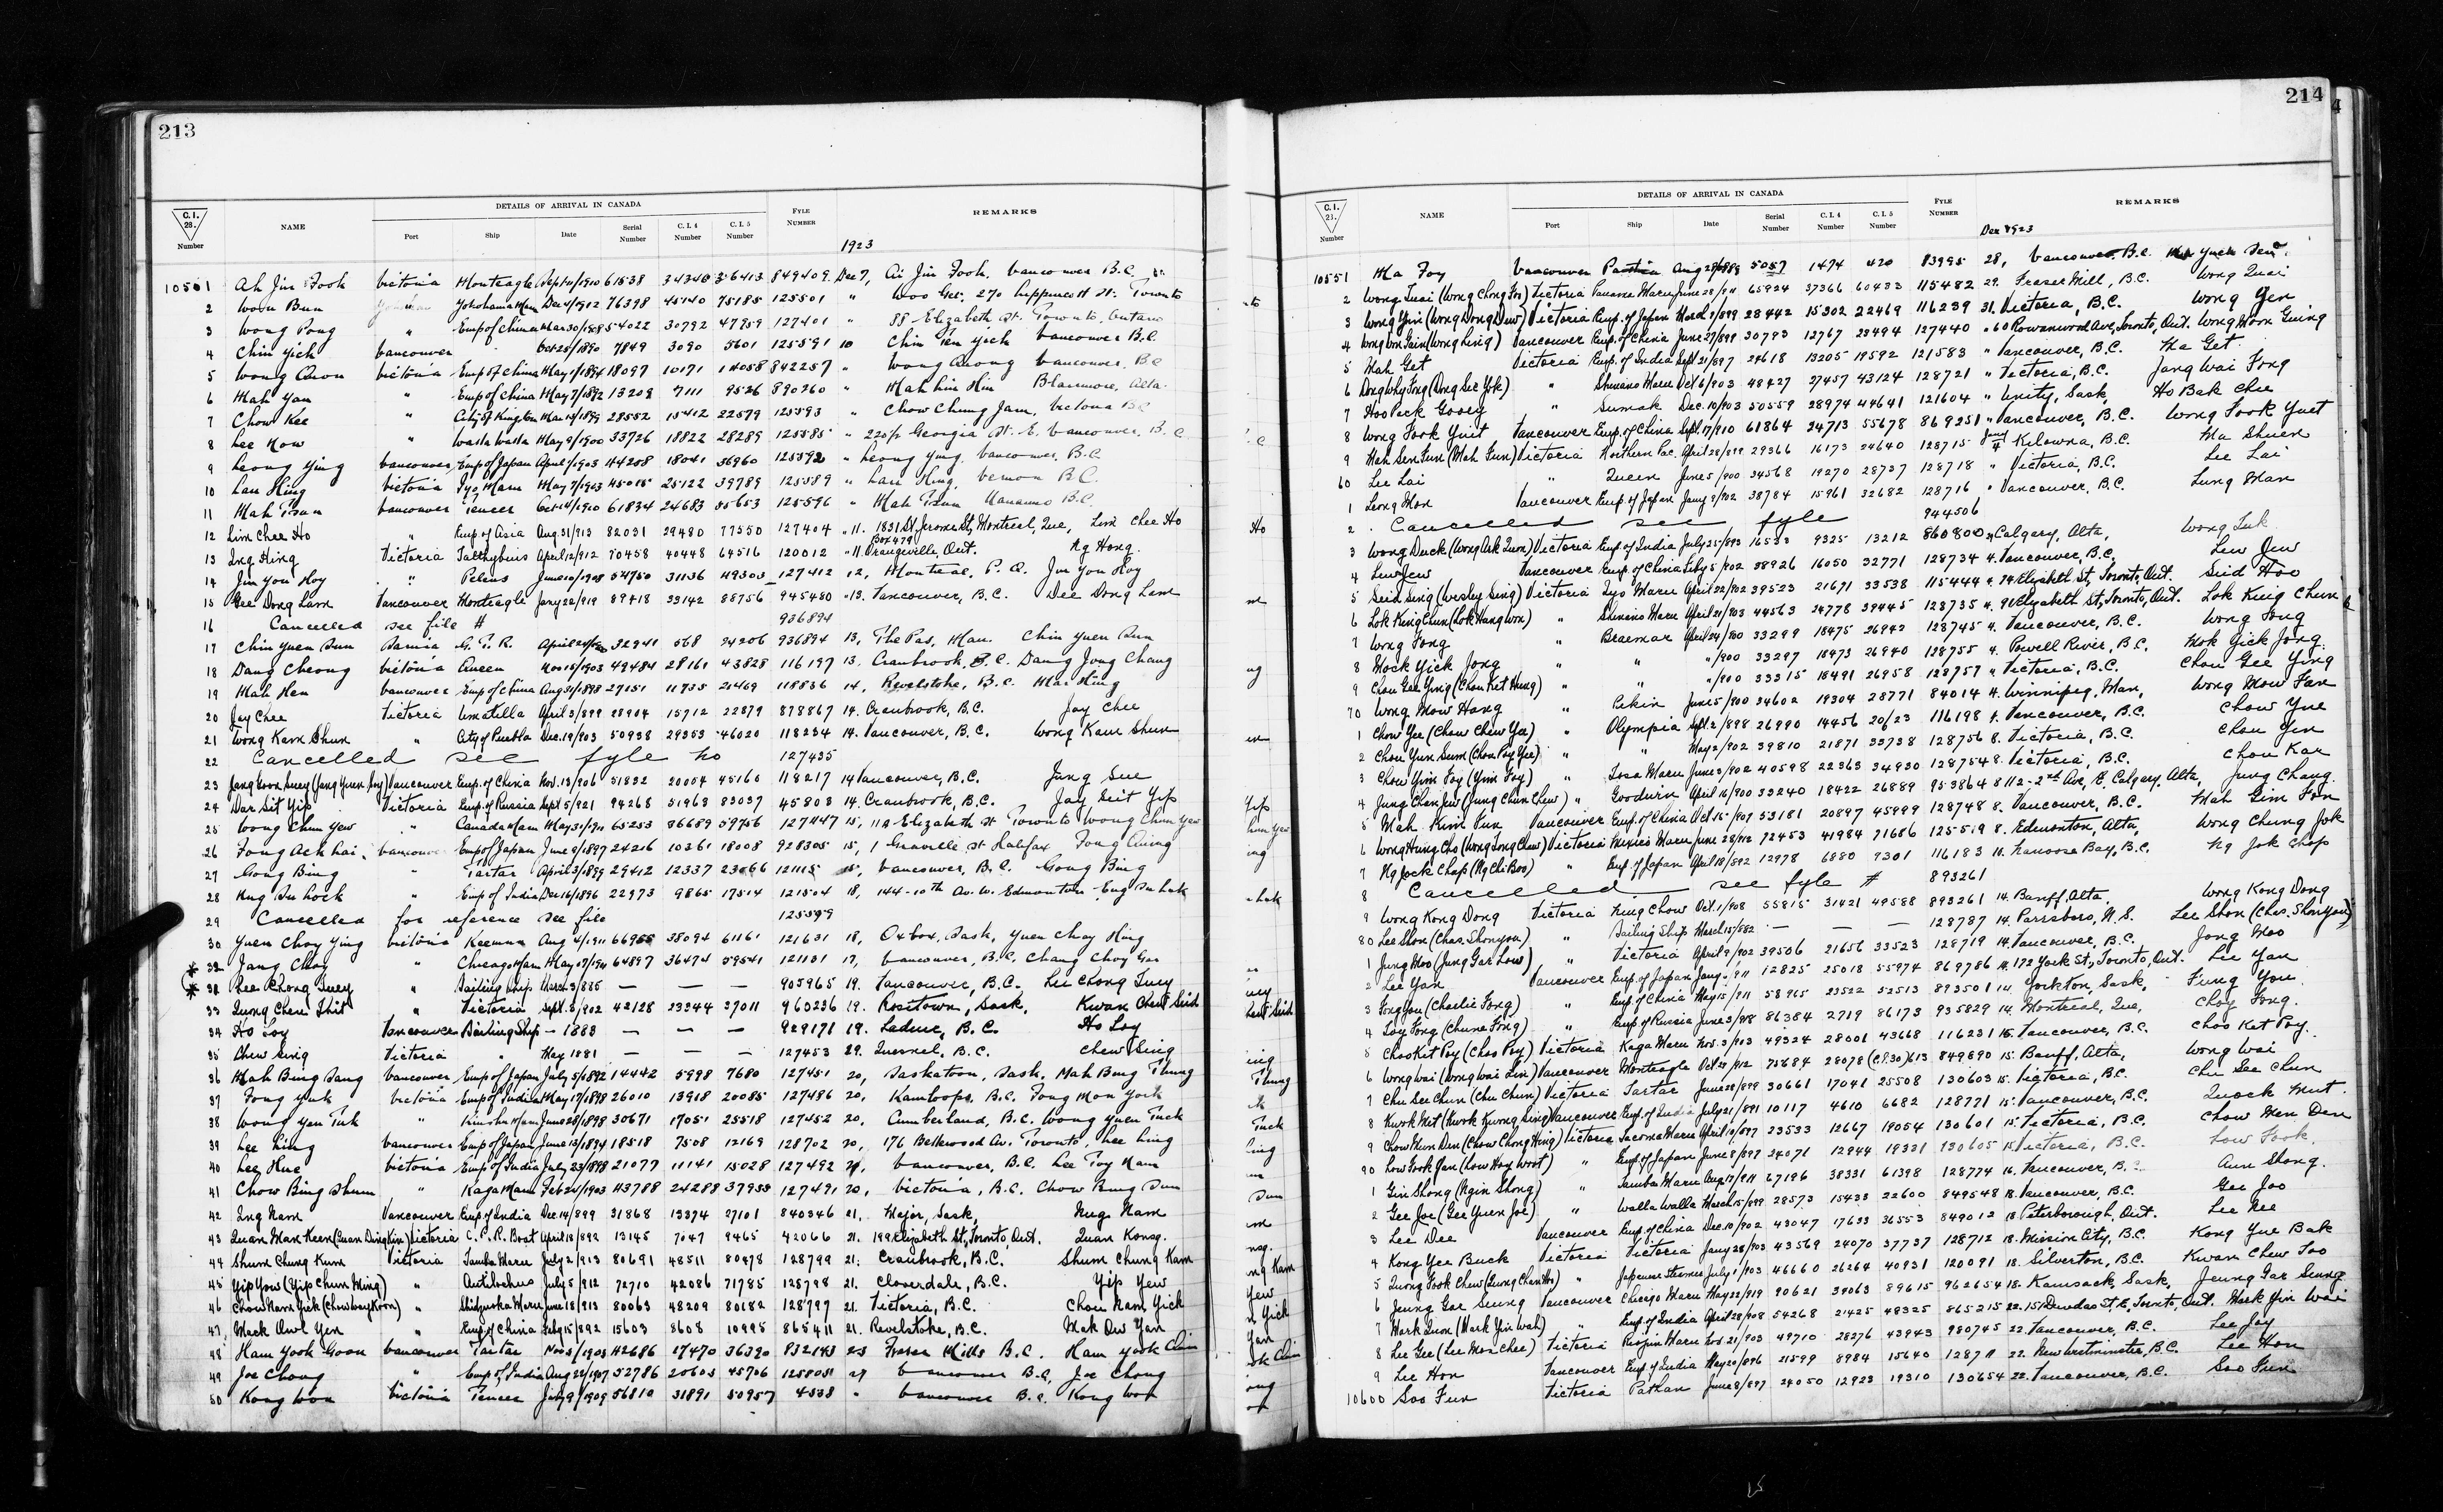 213
C. I. 28. Number NAME DETAILS OF ARRIVAL IN CANADA Port Ship Date Serial Number C. I. 4 Number C. I. 5 Number FYLE NUMBER REMARKS
1923
10501 Ah Jin Fook Victoria Monteagle 61538 34340 36413 849409 Dec 7, Ai Jin Fook, Vancouver B.C.
2 Woon Bun Yokohama Maru Dec 4/1912 76398 45140 75185 125501 " Woo Get, 270 Lippincott St. Toronto
3 Wong Pong " Emp of China 54022 30792 47959 127401 " 88 Elizabeth St. Toronto, Ontario
4 Chin Yick Vancouver Oct 28/1890 7849 3090 5601 125591 10 Chin Ten Yick Vancouver B.C.
5 Wong Quon Victoria Emp of China May 1/1894 18097 10171 14058 842257 " Wong Quong Vancouver, B.C
6 Mah Yan " Emp of China May 7/1892 13209 7111 9526 890260 " Mah Lin Hin Blairmore, Alta.
7 Chow Kee " City of Kingston Mar 13/1899 28552 15412 22579 125593 " Chow Chung Jam, Victoria BC
8 Lee How " Walla Walla May 9/1900 33726 18822 28289 125585 " 220½ Georgia St. E. Vancouver, B.C
9 Leong Ying Vancouver Emp of Japan April 7/1903 44208 18041 36960 125592 " Leong Ying. Vancouver. B.C.
10 Lau Hing Victoria Iyo Maru May 7/1903 45015 25122 39789 125589 " Lau Hing, Vernon B.C.
11 Mah Tsun Vancouver Teucer Oct 14/1910 61834 24683 55653 125596 " Mah Tsun Nanaimo B.C.
12 Lim Chee Ho " Emp of Asia Aug. 31/913 82031 29480 77550 127404 " 11. 1831 St Jerome St, Montreal, Que, Lim Chee Ho
13 Ing Hing Victoria Talthybius April 12/912 70458 40448 64516 120012 " 11. Box 479 Orangeville, Ont. Ng Hong.
14 Jin You Hoy " Peleus June 10/1908 54750 31136 49303 127412 12, Montreal, P. Q. Jin You Hoy
15 Gee Dong Lam Vancouver Monteagle Jany 22/919 89418 33142 88756 945480 13. Vancouver, B.C. Dee Dong Lam
16 Cancelled see file # 936894
17 Chin Yuen Sun Sarnia G. T. R. 32941 568 24206 936894 13, The Pas, Man. Chin Yuen Sun
18 Dang Cheong Victoria Queen Nov 15/1903 49484 28161 43828 116197 13. Cranbrook, B.C. Dang Jong Chang
19 Mah Hen Vancouver Emp of China Aug 31/1898 27151 11735 21469 118836 14, Revelstoke, B.C. Mar Hing
20 Jay Chee Victoria Umatilla April 3/899 28904 15712 22879 878867 14. Cranbrook, B.C. Jay Chee
21 Wong Kam Shun " City of Puebla Dec. 19/903 50938 29353 46020 118234 14. Vancouver, B.C. Wong Kam Shun
22 Cancelled see fyle no 127435
23 Jang Soon Suey (Jang Yuen Soy) Vancouver Emp. of China Nov. 13/906 51832 20004 45160 118217 14 Vancouver, B.C. Jang Sue
24 Dar Sit Yip Victoria Emp. of Russia Sept 5/921 94268 51963 83037 45803 14. Cranbrook, B.C. Jay Seit Yip
25 Wong Chun Yew " Canada Maru May 31/1911 65253 36689 59756 127447 15, 11A Elizabeth St Toronto Wong Chun Yew
26 Fong Ack Lai. Vancouver Emp of Japan June 9/1897 24216 10361 18008 928305 15, 1 Granville St Halifax Fong Aiing
27 Gong Bing " Tartar April 3/1899 29412 12337 23066 121115 15, Vancouver, B.C. Gong Bing
28 Hug Su Lock " Emp of India Dec 16/1896 22973 9865 17514 121504 18, 144-10th Av. W. Edmonton Eng Su Lok
29 Cancelled for reference see file 125599
30 Yuen Choy Ying Victoria Keemun Aug 4/1911 66955 38094 61161 121631 18, Oxbow, Sask, Yuen Choy Hing
* 32 Jang Choy " Chicago Maru 64897 36474 59541 121131 17, Vancouver, B.C. Chang Choy Gor
* 31 Lee Chong Suey " Sailing Ship March 3/885 — — — 905965 19. Vancouver, B.C. Lee Chong Suey
33 Quong Chew Shit " Victoria Sept. 8/902 42128 23344 37011 960236 19. Rosetown, Sask, Kwan Chew Seid
34 Ho Loy Vancouver Sailing Ship — 1883 — — — 929171 19. Ladner, B.C. Ho Loy
35 Chew Sing Victoria " May 1881 — — — 127453 29. Quesnel, B.C. Chew Sing
36 Mah Bing Sang Vancouver Emp of Japan July 5/1892 14442 5998 7680 127451 20, Saskatoon, Sask, Mah Bing Thung
37 Fong Yuk Victoria Emp of India May 17/1898 26010 13918 20085 127486 20, Kamloops, B.C. Fong Mon York
38 Wong Yen Tuk " Kinshu Maru June 28/1898 30671 17051 25518 127452 20, Cumberland, B.C. Wong Yuen Tuck
39 Lee Ling Vancouver Emp of Japan June 13/1894 18518 7508 12169 128702 20, 176 Bellwood Av. Toronto, Lee Ling
40 Lee Hue Victoria Emp of India 21077 11141 15028 127492 21, Vancouver, B.C. Lee Toy Nam
41 Chow Bing Shum " Kaga Maru 43788 24288 37955 127491 20, Victoria, B.C. Chow Bing Sum
42 Ing Nam Vancouver Emp. of India Dec 14/899 31868 13374 27101 840346 21, Major, Sask, Nug Nam
43 Quan Man Keen (Quan Ding Kin) Victoria C. P. R. Boat April 18/892 13145 7047 9465 42066 21. 199 Elizabeth St, Toronto, Ont. Quan Kong.
44 Shum Chung Kum Victoria Tamba Maru July 2/913 80691 48511 80478 128799 21. Cranbrook, B.C. Shum Chung Kam
45 Yip Yow (Yip Chun Ming) " Antilochus July 5/912 72710 42086 71785 128798 21. Cloverdale, B.C. Yip Yew
46 Chow Nam Yick (Chow Way Koon) " Shidzuoka Maru June 18/913 80063 48209 80182 128797 21. Victoria, B.C. Chow Nam Yick
47 Mack Owl Yen " Emp of China Feby 15/892 15603 8608 10995 865411 21. Revelstoke, B.C. Mak Ow Yan
48 Ham Yook Goon Vancouver Tartar 42686 17470 36320 832143 23 Fraser Mills B.C. Ham Yook Chim
49 Joe Chong " Emp of India Aug 28/1907 52786 20603 45706 125805 27 Vancouver B.C, Joe Chong
50 Kong Won Victoria Teucer July 9/1909 56810 31891 50957 4538 " Vancouver B.C. Kong Won
214
C. I. 23. Number NAME DETAILS OF ARRIVAL IN CANADA Port Ship Date Serial Number C. I. 4 Number C. I. 5 Number FYLE NUMBER REMARKS
Dec 1923
10551 Ma Foy Vancouver Parthia 5057 1474 420 83995 28, Vancouver B.C. Ma Yuck Sen
2 Wong Quai (Wong Chong Foo) Victoria Panama Maru June 28/911 65924 37366 60433 115482 29. Fraser Mill, B.C. Wong Quai
3 Wong Yin (Wong Dong Dew) Victoria Emp. of Japan March 7/899 28442 15302 22469 116239 31. Victoria, B.C. Wong Yen
4 Wong Won Gain (Wong Ling) Vancouver Emp. of China June 27/899 30793 12767 23494 127440 " 60 Rowanwood Ave, Toronto, Ont. Wong Worn Guing
5 Mah Get Victoria Emp. of India Sept 21/897 24618 13205 19592 121583 " Vancouver, B.C. Ma Get
6 Dong Why Fong (Dong See Yok) " Shinano Maru Oct 6/903 48427 27457 43124 128721 " Victoria, B.C. Jang Wai Fong
7 Hoo Peck Gooey " Suman Dec. 10/903 50559 28974 44641 121604 " Unity, Sask, Ho Bak Chee
8 Wong Fook Yuit Vancouver Emp. of China Sept. 17/910 61864 24713 55678 869251 " Vancouver, B.C. Wong Fook Yuet
9 Mah Sen Fun (Mah Gun) Victoria Northern Pac. April 28/899 29366 16173 24640 128715 Jany 4 Kelowna, B.C. Ma Shuen
60 Lee Lai " Queen June 5/900 34568 19270 28737 128718 " Victoria, B.C. Lee Lai
1 Leong Mon Vancouver Emp. of Japan Jany 9/902 38784 15961 32682 128716 " Vancouver, B.C. Lung Man
2 Cancelled see fyle 944506
3 Wong Duck (Wong Ark Quon) Victoria Emp. of India July 25/893 16533 9325 13212 860800 Calgary, Alta, Wong Tuk
4 Lew Jew Vancouver Emp. of China Feby 5/902 38926 16050 32771 128734 4. Vancouver, B.C. Lew Jew
5 Seid Sing (Wesley Sing) Victoria Iyo Maru April 22/902 39523 21671 33538 115444 4. 74 Elizabeth St, Toronto, Ont. Seid Hoo
6 Lok King Chun (Lok Hang Won) " Shinano Maru April 21/903 44563 24778 39445 128735 4. 92 Elizabeth St, Toronto, Ont. Lok King Chun
7 Wong Fong " Braemar April 24/900 33299 18475 26942 128745 4. Vancouver, B.C. Wong Fong
8 Mock Yick Jong " " "/900 33297 18473 26940 128755 4. Powell River, B.C. Mok Yick Jong
9 Chou Gee Ying (Chou Ket Hung) " " "/900 33315 18491 26958 128757 " Victoria, B.C. Chou Gee Ying
70 Wong Mow Hang " Pekin June 5/900 34602 19304 28771 84014 4. Winnipeg, Man, Wong Mow Fan
1 Chow Yee (Chow Chew Yee) " Olympia Sept. 2/898 26990 14456 20123 116198 4. Vancouver, B.C. Chow Yue
2 Chou Yun Sum (Chou Poy Yee) " " May 2/902 39810 21871 33738 128756 8. Victoria, B.C. Chou Yen
3 Chou Yim Foy (Yim Foy) " Tosa Maru June 3/902 40598 22363 34930 128754 8. Victoria, B.C. Chou Kar
4 Jung Chan Jew (Jung Chun Chew) " Goodwin April 16/900 33240 18422 26889 953864 8 112-2nd Ave, E, Calgary, Alta, Jung Chang
5 Mah Kim Fun Vancouver Emp. of China Oct 15/907 53181 20897 45999 128748 8. Vancouver, B.C. Mah Gim Fon
6 Wong Hung Cho (Wong Song Chew) Victoria Mexico Maru June 28/912 72453 41984 71686 125519 8. Edmonton, Alta, Wong Chung Jok
7 Ng Jock Chap (Ng Chi Boo) " Emp. of Japan April 18/892 12978 6880 9301 116183 11. Nanoose Bay, B.C. Ng Jok Chap
8 Cancelled see fyle # 893261
9 Wong Kong Dong Victoria Ning Chow Oct. 1/908 55815 31421 49588 893261 14. Banff, Alta. Wong Kong Dong
80 Lee Shon (Chas. Shonyou) " Sailing Ship March 15/882 — — — 128787 14. Parrsboro, N.S. Lee Shon (Chas. Shonyou)
1 Jung Moo (Jung Gar Low) " Victoria April 9/902 39506 21656 33523 128719 14. Vancouver, B.C. Jong Moo
2 Lee Yan Vancouver Emp. of Japan 12825 25018 55974 869786 14. 172 York St., Toronto, Ont. Lee Yan
3 Fong You (Charlie Fong) " Emp. of China May 15/911 58965 23522 52513 893501 14. Yorkton, Sask, Fung You
4 Toy Fong (Chune Fong) " Emp of Russia June 3/918 86384 2719 86173 935829 14. Montreal, Que, Choy Fong.
5 Choo Kit Poy (Choo Poy) Victoria Kaga Maru Nov. 3/903 49324 28001 43668 116231 15. Vancouver, B.C. Choo Ket Poy.
6 Wong Wai (Wong Wai Lin) Vancouver Monteagle 75684 28078 (C.I.30) 613 849890 15. Banff, Alta, Wong Wai
7 Chu See Chun (Chu Chun) Victoria Tartar June 28/899 30661 17041 25508 130603 15. Victoria, B.C. Chu See Chun
8 Kwok Mit (Kwok Kwong Sing) Vancouver Emp. of India July 21/891 10117 4610 6682 128771 15. Vancouver, B.C. Quock Mut.
9 Chow Mun Den (Chow Chong Hing) Victoria Tacoma Maru April 10/897 23533 12667 18054 130601 15. Victoria, B.C. Chow Men Den
90 Low Fook Gan (Low Hoy Woot) " Emp. of Japan June 8/897 24071 12944 19331 130605 15. Victoria, B.C. Low Fook.
1 Gin Shong (Ngin Shong) " Tamba Maru Aug 17/911 67196 38331 61398 128774 16. Vancouver, B.C. Aun Shong.
2 Gee Joe (Gee Yuen Joe) " Walla Walla March 15/899 28573 15433 22600 849548 18. Vancouver, B.C. Gee Joo
3 Lee Dee Vancouver Emp. of China Dec. 10/902 43047 17633 36553 849012 18. Peterborough, Ont. Lee Nee
4 Kong Yee Buck Victoria Victoria Jany 28/903 43569 24070 37737 128712 18. Mission City, B.C. Kong Yue Bak
5 Quong Fook Chew (Quong Chan Hoo) " Japanese Steamer July 1/903 46660 26264 40931 120091 18. Silverton, B.C. Kwan Chew Foo
6 Jeung Gar Seung Vancouver Chicago Maru May 22/919 90621 34063 89615 962654 18. Kamsack, Sask, Jeung Gar Seung
7 Mark Quon (Mark Yin Wah) " Emp. of India April 28/908 54268 21425 48325 865215 22. 151 Dundas St. E, Toronto, Ont. Mark Yin Wai
8 Lee Gee (Lee Mon Chee) Victoria Riojun Maru Nov. 21/903 49710 28276 43943 980745 22. Vancouver, B.C. Lee Jay
9 Lee Hon Vancouver Emp. of India May 20/896 21599 8984 15640 128711 22. New Westminster, B.C. Lee Hon
10600 Soo Fun Victoria Pathan June 8/897 24050 12923 19310 130654 22. Vancouver, B.C. Soo Fun